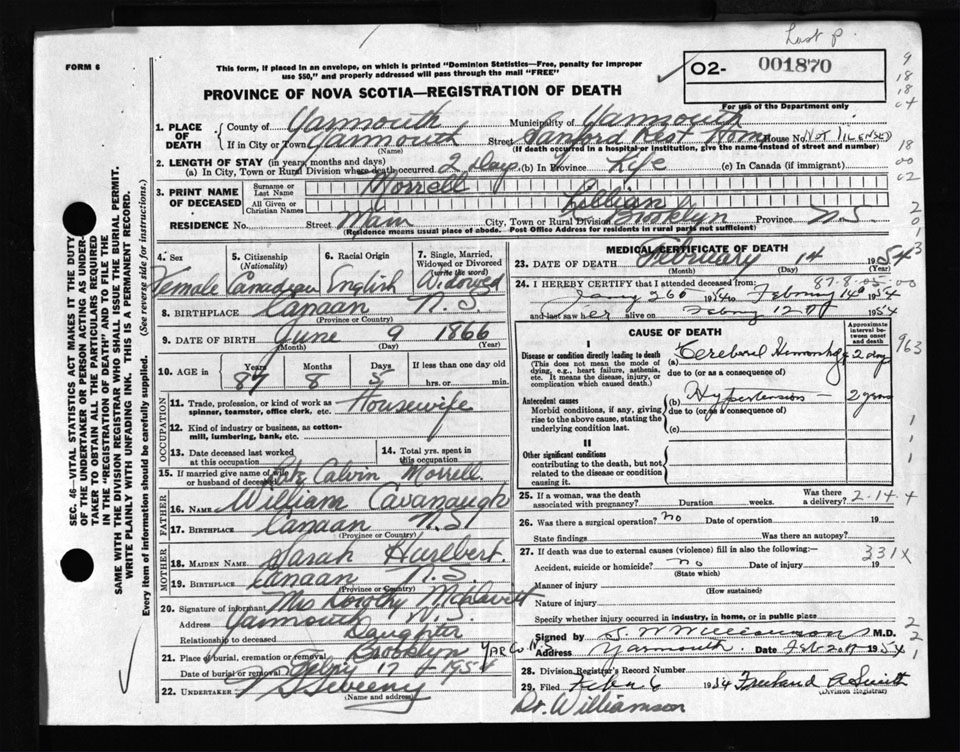 Last p.
FORM 6
This form, if placed in an envelope, on which is printed "Dominion Statistics—Free, penalty for improper
use $50," and properly addressed will pass through the mail "FREE"
O2- 001870
For use of the Department only
PROVINCE OF NOVA SCOTIA—REGISTRATION OF DEATH
9
18
18
04
18
00
02
2
0
1
3
1. PLACE OF DEATH
County of Yarmouth Municipality of Yarmouth
If in City or Town Yarmouth Street Sanford Rest Home House No. NOT LICENSED
(Name) (If death occurred in a hospital or institution, give the name instead of street and number)
2. LENGTH OF STAY (in years, months and days)
(a) In City, Town or Rural Division where death occurred 2 Days (b) In Province Life (c) In Canada (if immigrant)
3. PRINT NAME OF DECEASED
Surname or Last Name Morrell
All Given or Christian Names Lillian
RESIDENCE No. Street Main City, Town or Rural Division Brooklyn Province N.S.
(Residence means usual place of abode. Post Office Address for residents in rural parts not sufficient)
4. Sex Female
5. Citizenship (Nationality) Canadian
6. Racial Origin English
7. Single, Married, Widowed or Divorced (write the word) Widowed
8. BIRTHPLACE Canaan N.S.
(Province or Country)
9. DATE OF BIRTH June 9 1866
(Month) (Day) (Year)
10. AGE in Years Months Days If less than one day old
87 8 5 hrs. or min.
OCCUPATION
11. Trade, profession, or kind of work as spinner, teamster, office clerk, etc. Housewife
12. Kind of industry or business, as cotton-mill, lumbering, bank, etc.
13. Date deceased last worked at this occupation
14. Total yrs. spent in this occupation
15. If married give name of wife or husband of deceased Calvin Morrell.
FATHER
16. NAME William Cavanaugh
17. BIRTHPLACE Canaan N.S.
(Province or Country)
MOTHER
18. MAIDEN NAME Sarah Hurlbert.
19. BIRTHPLACE Canaan N.S.
(Province or Country)
20. Signature of informant Mrs Dorothy
Address Yarmouth N.S.
Relationship to deceased Daughter
21. Place of burial, cremation or removal Brooklyn YAR CO N.S.
Date of burial or removal 17 1954
22. UNDERTAKER Sweeny
(Name and address)
MEDICAL CERTIFICATE OF DEATH
23. DATE OF DEATH February 14 1954
(Month) (Day) (Year)
24. I HEREBY CERTIFY that I attended deceased from: 87-8-05-00
1954 to 14 1954
and last saw her alive on 12 1954
CAUSE OF DEATH
Approximate interval between onset and death
I
Disease or condition directly leading to death (a) Cerebral 2 days
(This does not mean the mode of dying, e.g., heart failure, asthenia, etc. It means the disease, injury, or complication which caused death.)
due to (or as a consequence of)
Antecedent causes (b) Hypertension — 2 years
Morbid conditions, if any, giving rise to the above cause, stating the underlying condition last.
due to (or as a consequence of)
(c)
II
Other significant conditions
contributing to the death, but not related to the disease or condition causing it.
963
1
1
1
25. If a woman, was the death associated with pregnancy? Duration weeks. Was there a delivery? 2-14-4
26. Was there a surgical operation? no Date of operation 19
State findings Was there an autopsy?
27. If death was due to external causes (violence) fill in also the following:— 331X
Accident, suicide or homicide? no Date of injury 19
(State which)
Manner of injury
(How sustained)
Nature of injury
Specify whether injury occurred in industry, in home, or in public place
Signed by S. W Williamson M.D.
Address Yarmouth. Date Feb 20 1954
2
2
1
28. Division Registrar's Record Number
29. Filed 1954 Freeland A Smith
(Division Registrar)
Dr. Williamson
SEC. 46—VITAL STATISTICS ACT MAKES IT THE DUTY
OF THE UNDERTAKER OR PERSON ACTING AS UNDER-
TAKER TO OBTAIN ALL THE PARTICULARS REQUIRED
IN THE "REGISTRATION OF DEATH" AND TO FILE THE
SAME WITH THE DIVISION REGISTRAR WHO SHALL ISSUE THE BURIAL PERMIT.
WRITE PLAINLY WITH UNFADING INK. THIS IS A PERMANENT RECORD.
Every item of information should be carefully supplied. (See reverse side for instructions.)